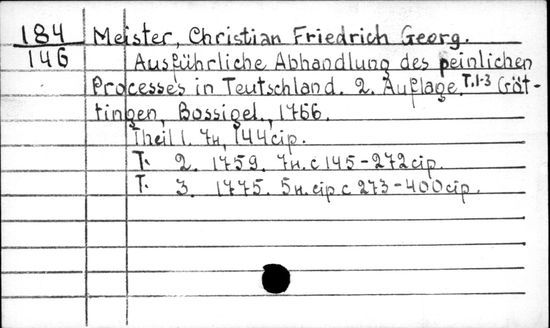 184 Meister, Christian Friedrich Georg.
146 Ausführliche Abhandlung des peinlichen
Processes in Teutschland. 2. Auflage. T.1-3 Göt-
tingen, Bossigel., 1766.
Theil 1. 7н, 144 сір.
T. 2. 1759. 7н. с 145-272 сір.
T. 3. 1775. 5н. сір с 273-400 сір.